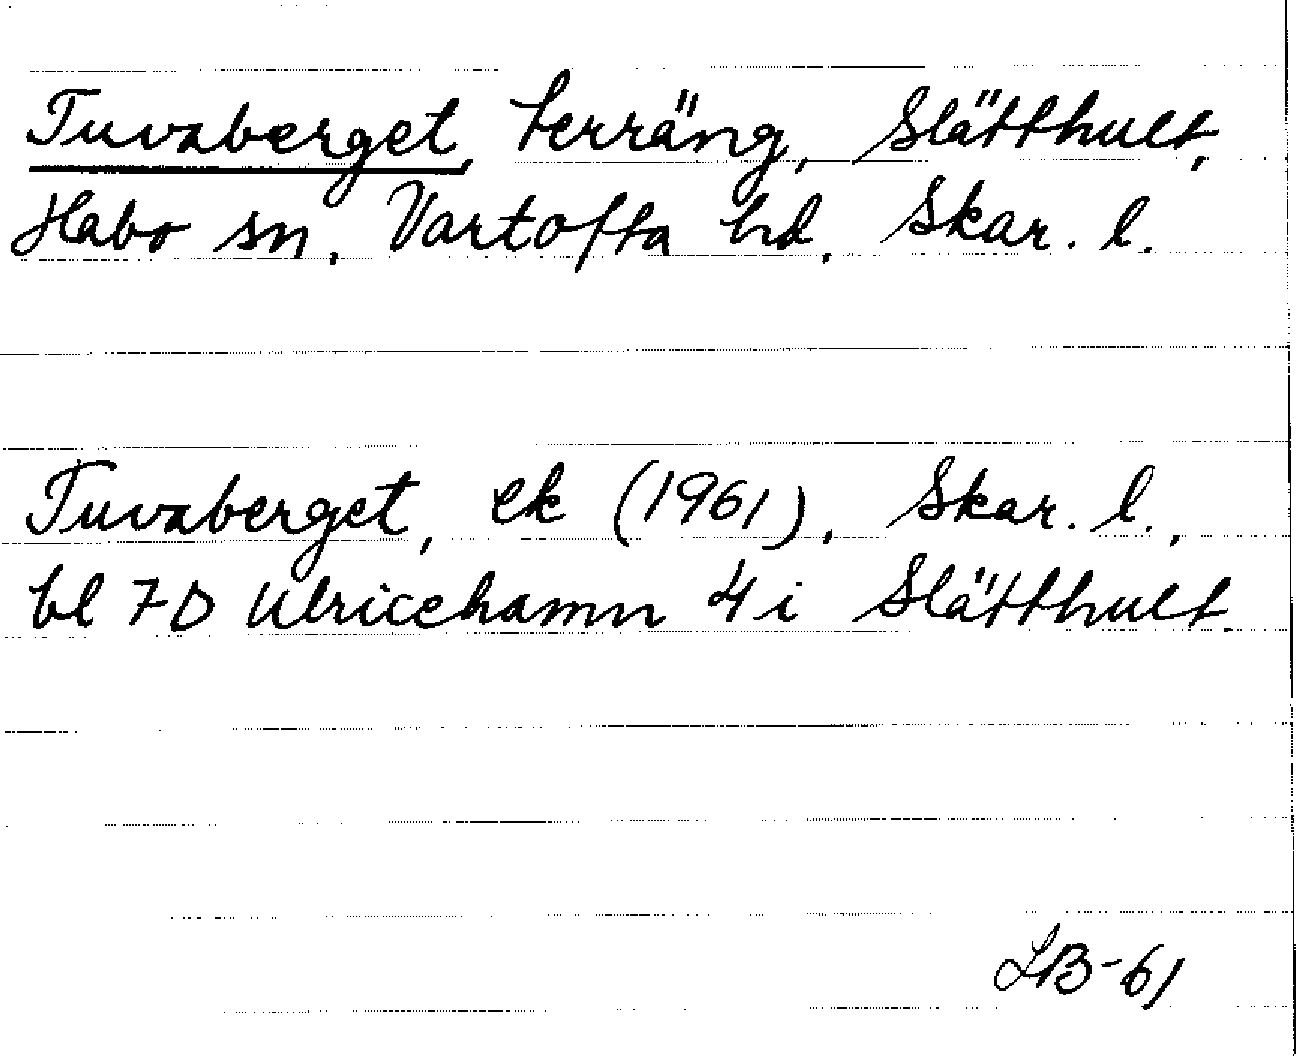 Tuvaberget, terräng, Slätthult,
Habo sn, Vartofta hd, Skar. l.
Tuvaberget, ek (1961), Skar. l.,
bl 7D Ulricehamn 4i Slätthult.
LB-61